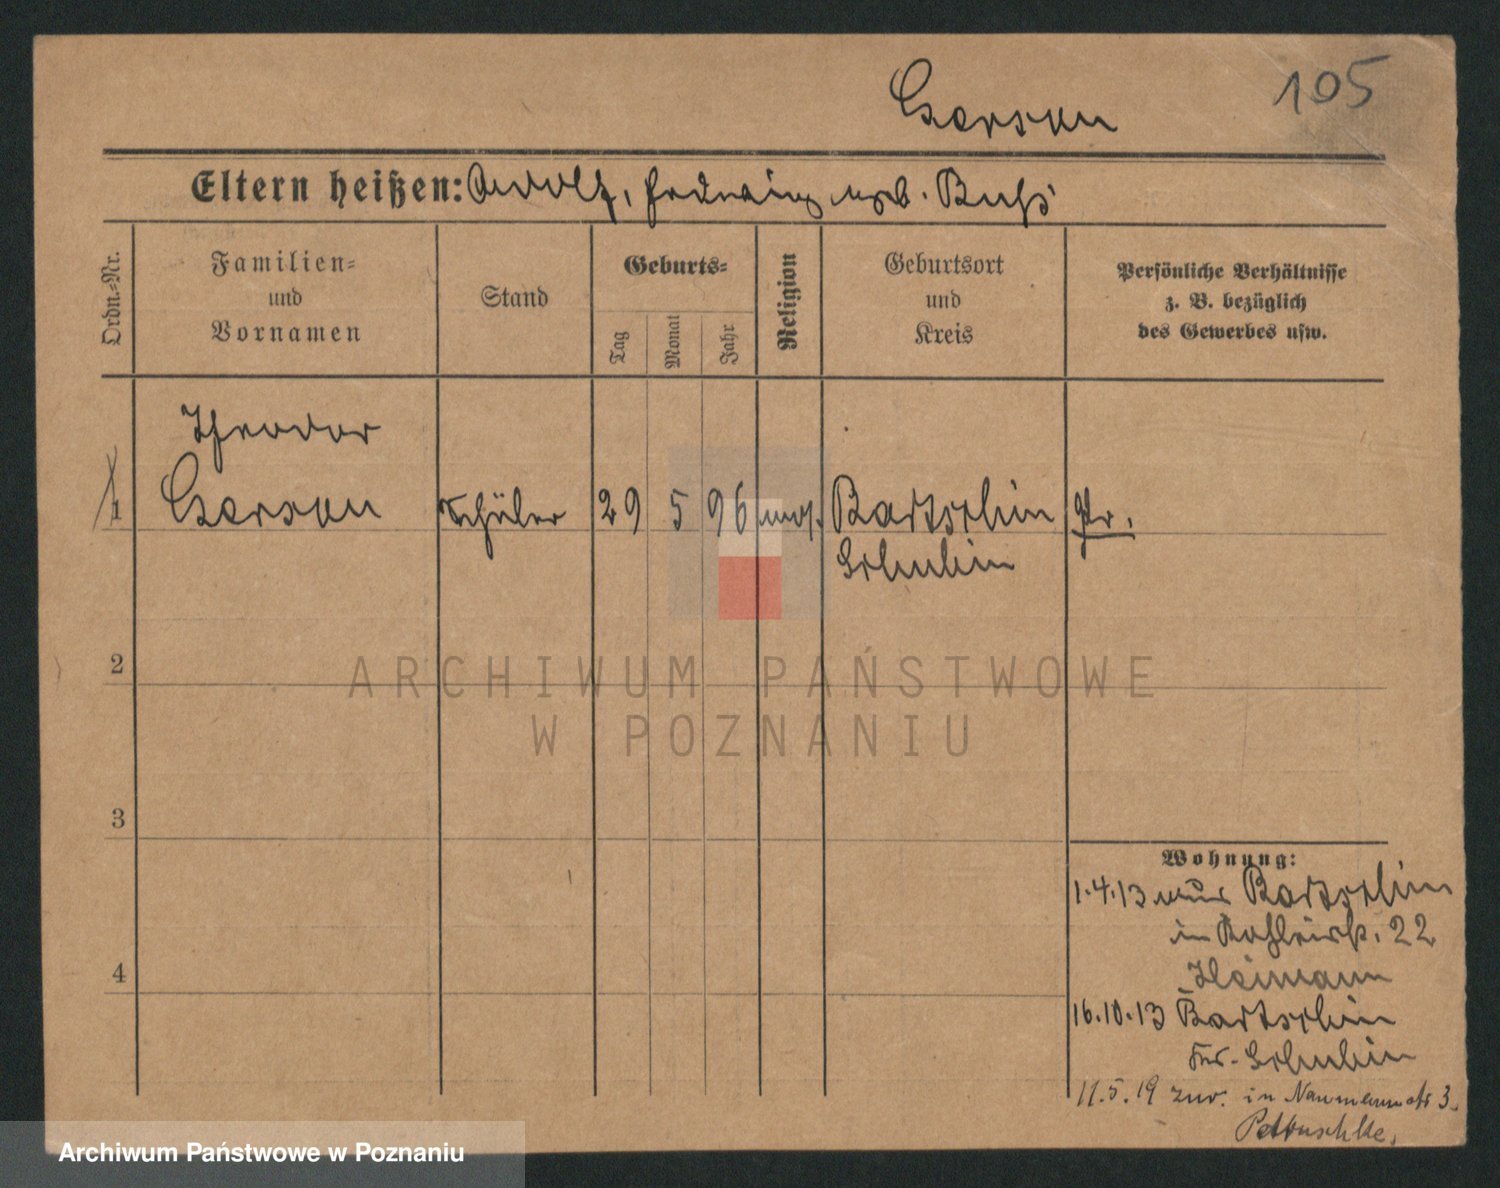 105
Gerson
Eltern heißen: Adolf, Hedwig geb. Buß
Ordn.-Nr.
Familien-
und
Vornamen
Stand
Geburts-
Tag
Monat
Jahr
Religion
Geburtsort
und
Kreis
Persönliche Verhältnisse
z. B. bezüglich
des Gewerbes usw.
Theodor
1 Schüler 29 5 96 mos. Bartschin Pr.
Schubin
2
ARCHIWUM PAŃSTWOWE
W POZNANIU
3
Wohnung:
1.4.13 Bartschin
in 22
4 Heimann
16.10.13 Bartschin
Krs. Schubin
11.5.19 zur. in Naumannstr 3.
Petruschke.
Archiwum Państwowe w Poznaniu